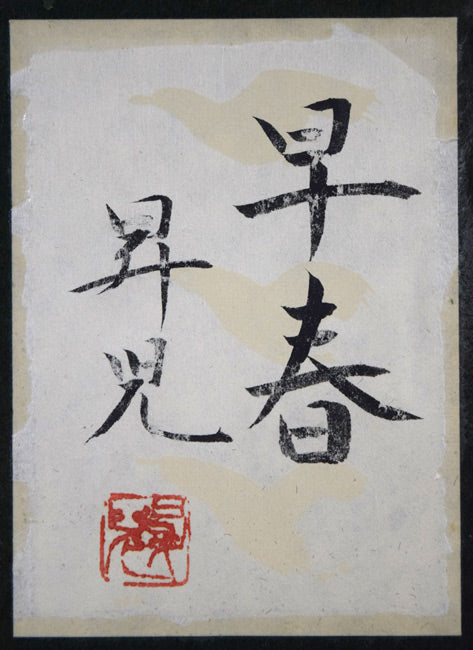 早春
昇児